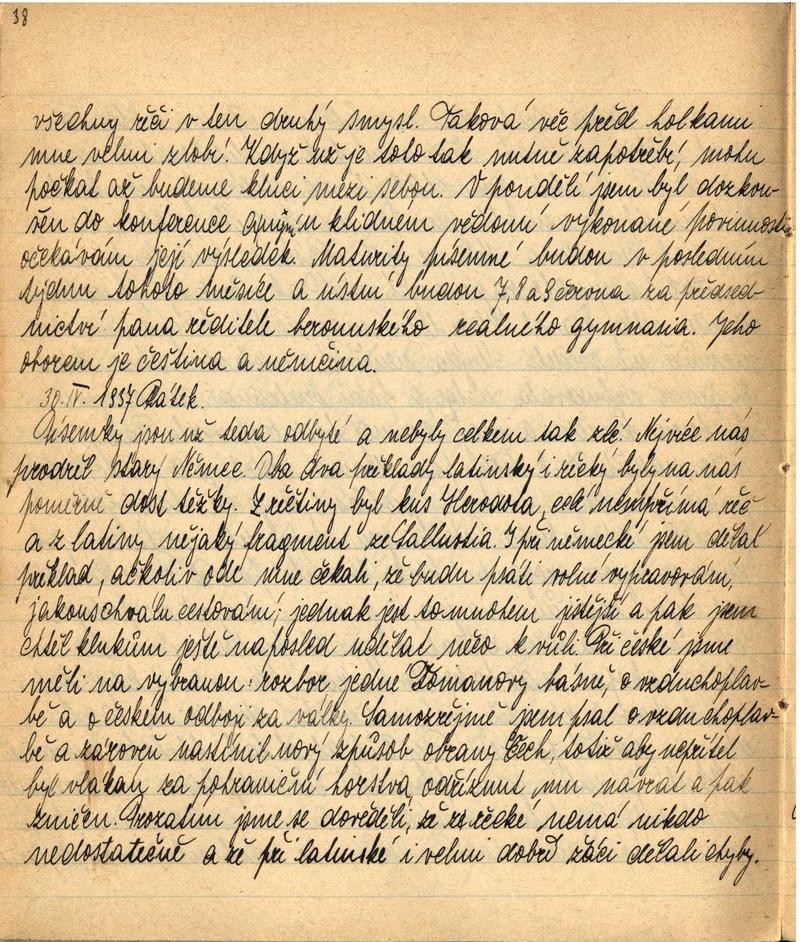 38
všechny řeči v ten druhý smysl. Taková věc před holkami
mne velmi zlobí! Když už je toto tak nutně zapotřebí, mohu
počkat až budeme kluci mezi sebou. V pondělí jsem byl dozkou-
šen do konference a nyní v klidném vědomí vykonané povinnosti
očekávám její výsledek. Maturity písemné budou v posledním
týdnu tohoto měsíce a ústní budou 7, 8 a 9 června za předsed-
nictví pana ředitele berounského reálného gymnasia. Jeho
oborem je čeština a němčina.
30. IV. 1937 Pátek.
Písemky jsou už teda odbyté a nebyly celkem tak zlé! Nejvíce nás
prodřel starý Němec. Oba dva příklady latinský i řecký byly na nás
poměrně dost těžky. Z řečtiny byl kus Herodota, celá nepřímá řeč
a z latiny nějaký fragment ze Sallustia. I při německé jsem dělal
překlad, ačkoliv ode mne čekali, že budu psáti volné vypravování,
jakous chválu cestování; jednak jest to mnohem jistější a pak jsem
chtěl klukům ještě naposled udělat něco k vůli. Při české jsme
měli na vybranou: rozbor jedné Tomanovy básně, o vzduchoplav-
bě a o českém odboji za války. Samozřejmě jsem psal o vzduchoplav-
bě a zároveň nastínil nový způsob obrany Čech, totiž aby nepřítel
byl vlákán za pohraniční horstva, odříznut mu návrat a pak
zničen. Prozatím jsme se dověděli, že z řecké nemá nikdo
nedostatečně a že při latinské i velmi dobří žáci dělali chyby.